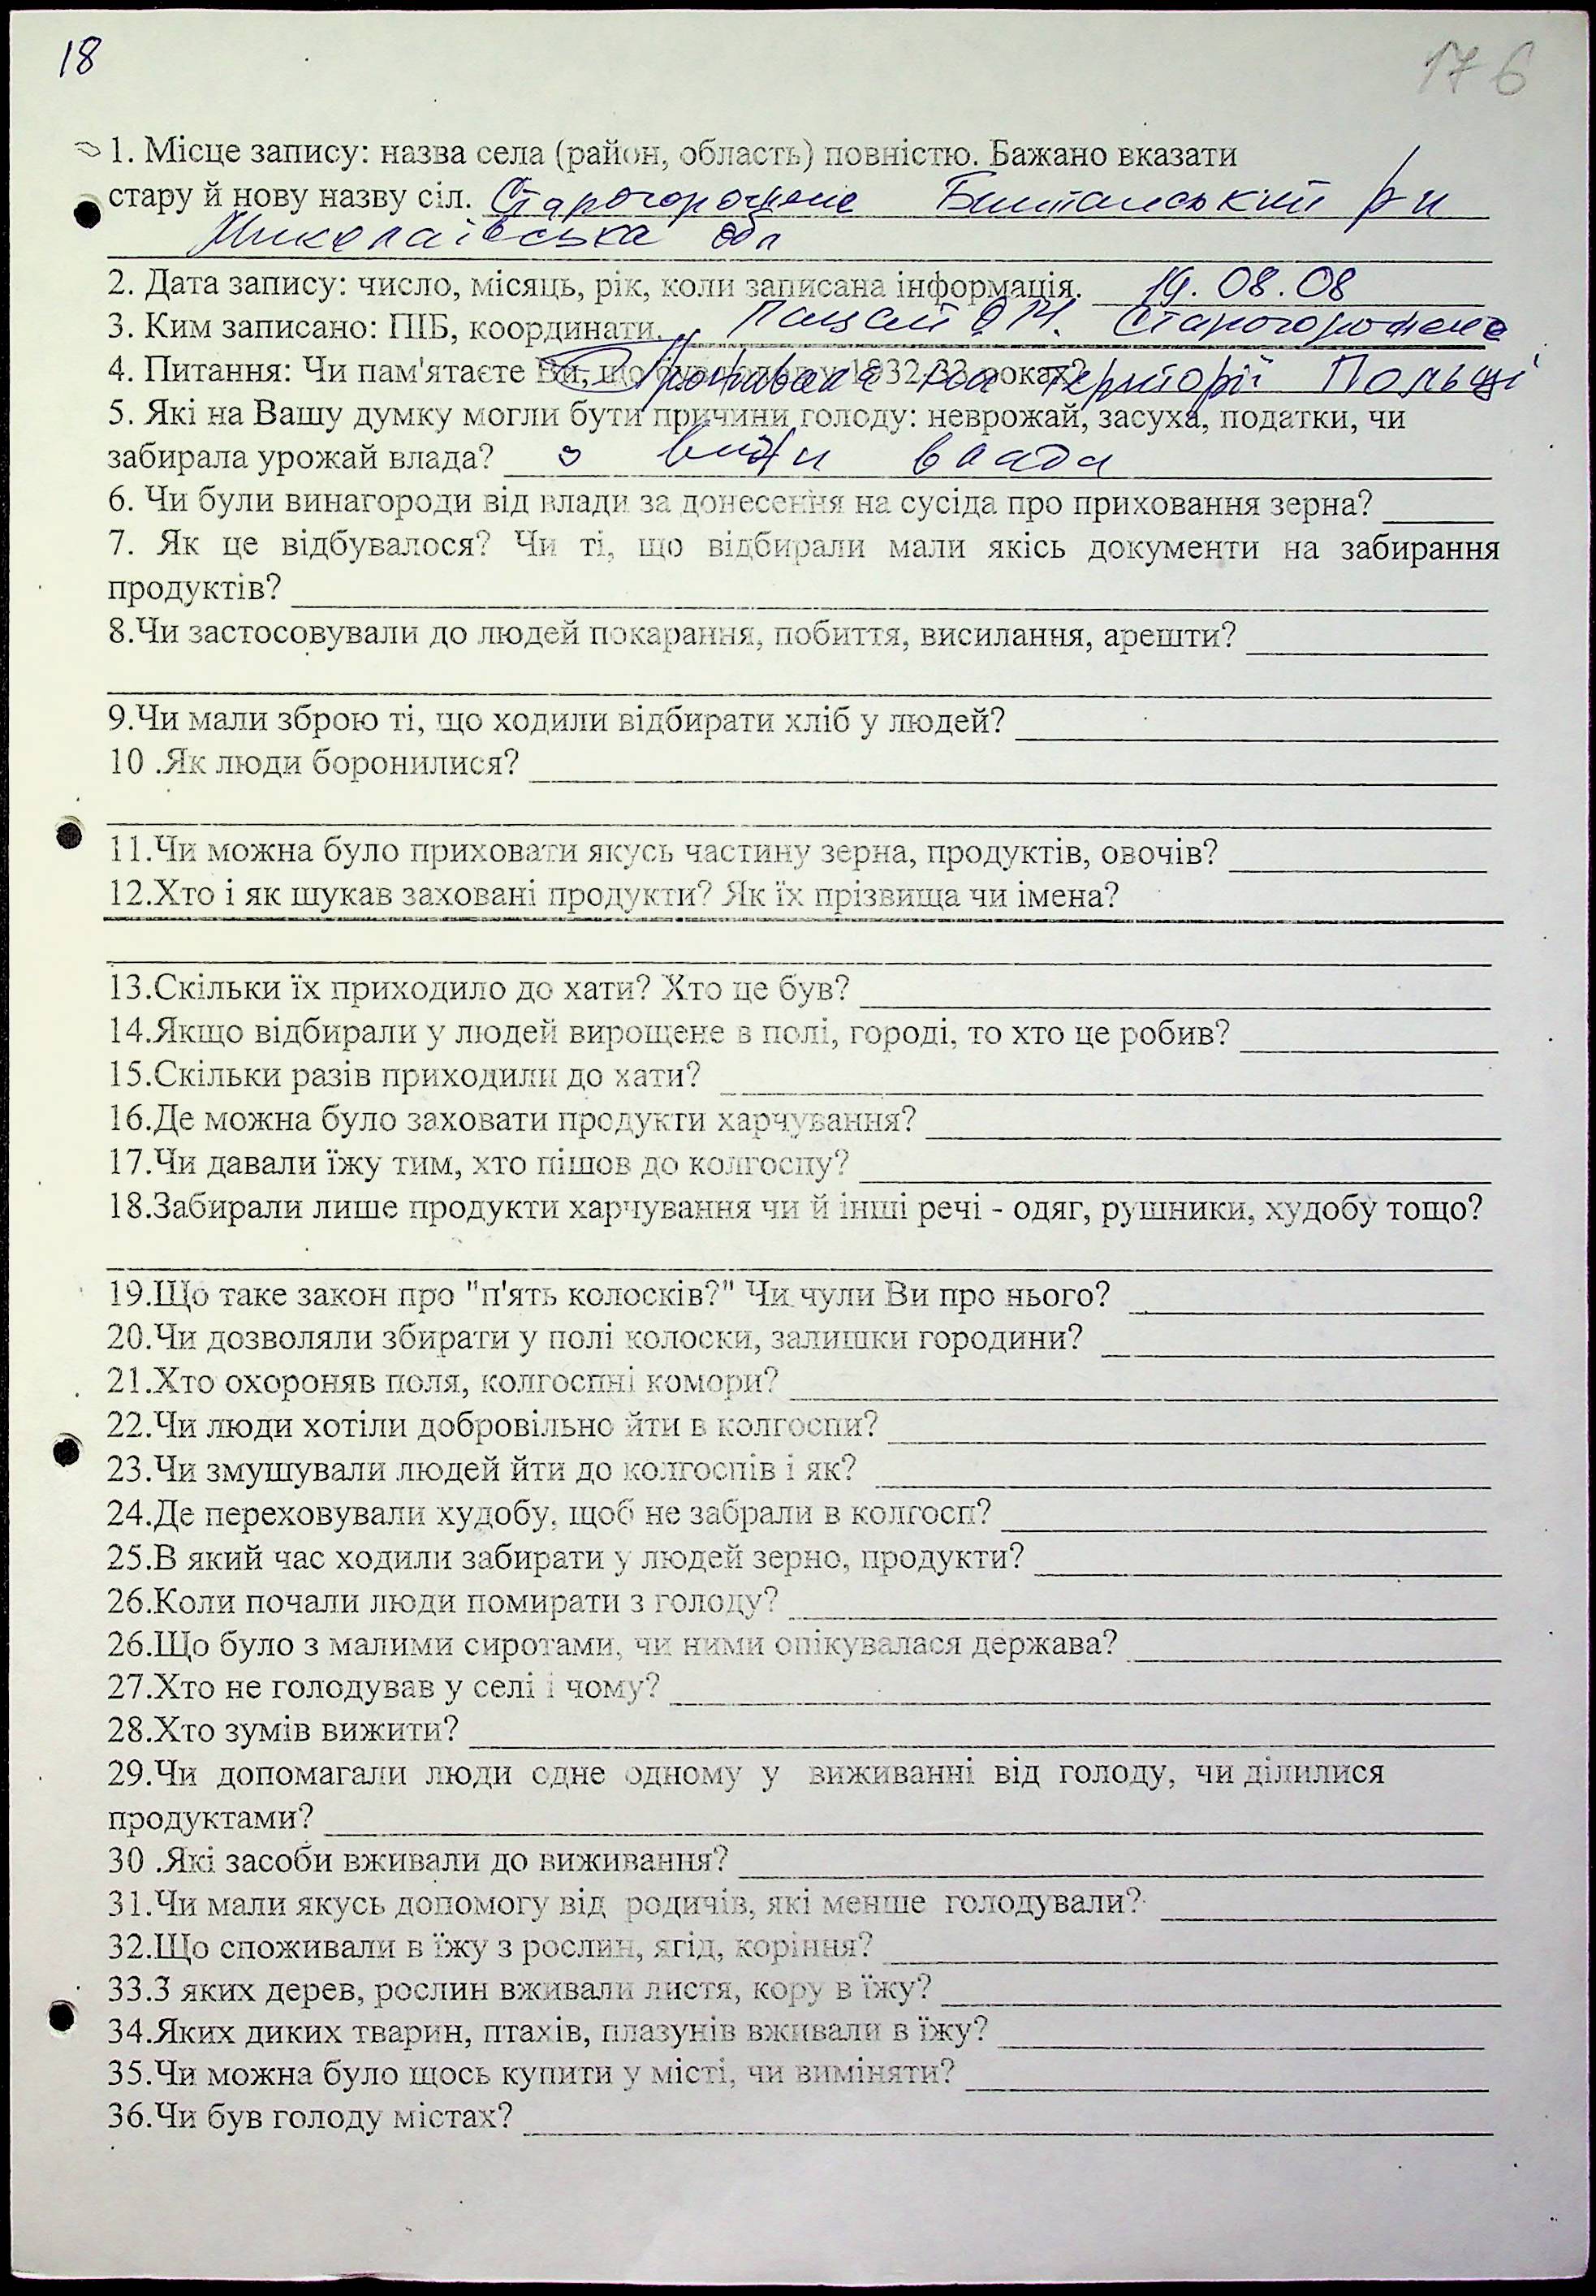 18
176
1. Місце запису: назва села (район, область) повністю. Бажано вказати
стару й нову назву сіл. Старогорожене Баштанський р-н
Миколаївська обл
2. Дата запису: число, місяць, рік, коли записана інформація. 19.08.08
3. Ким записано: ПІБ, координати. Старогорожене
4. Питання: Чи пам'ятаєте Ви, що був голод у 1932-33 роках? Проживала на території Польщі
5. Які на Вашу думку могли бути причини голоду: неврожай, засуха, податки, чи
забирала урожай влада? з вини влади
6. Чи були винагороди від влади за донесення на сусіда про приховання зерна?
7. Як це відбувалося? Чи ті, що відбирали мали якісь документи на забирання
продуктів?
8.Чи застосовували до людей покарання, побиття, висилання, арешти?
9.Чи мали зброю ті, що ходили відбирати хліб у людей?
10 .Як люди боронилися?
11.Чи можна було приховати якусь частину зерна, продуктів, овочів?
12.Хто і як шукав заховані продукти? Як їх прізвища чи імена?
13.Скільки їх приходило до хати? Хто це був?
14.Якщо відбирали у людей вирощене в полі, городі, то хто це робив?
15.Скільки разів приходили до хати?
16.Де можна було заховати продукти харчування?
17.Чи давали їжу тим, хто пішов до колгоспу?
18.Забирали лише продукти харчування чи й інші речі - одяг, рушники, худобу тощо?
19.Що таке закон про "п'ять колосків?" Чи чули Ви про нього?
20.Чи дозволяли збирати у полі колоски, залишки городини?
21.Хто охороняв поля, колгоспні комори?
22.Чи люди хотіли добровільно йти в колгоспи?
23.Чи змушували людей йти до колгоспів і як?
24.Де переховували худобу, щоб не забрали в колгосп?
25.В який час ходили забирати у людей зерно, продукти?
26.Коли почали люди помирати з голоду?
26.Що було з малими сиротами, чи ними опікувалася держава?
27.Хто не голодував у селі і чому?
28.Хто зумів вижити?
29.Чи допомагали люди одне одному у виживанні від голоду, чи ділилися
продуктами?
30 .Які засоби вживали до виживання?
31.Чи мали якусь допомогу від родичів, які менше голодували?
32.Що споживали в їжу з рослин, ягід, коріння?
33.З яких дерев, рослин вживали листя, кору в їжу?
34.Яких диких тварин, птахів, плазунів вживали в їжу?
35.Чи можна було щось купити у місті, чи виміняти?
36.Чи був голоду містах?